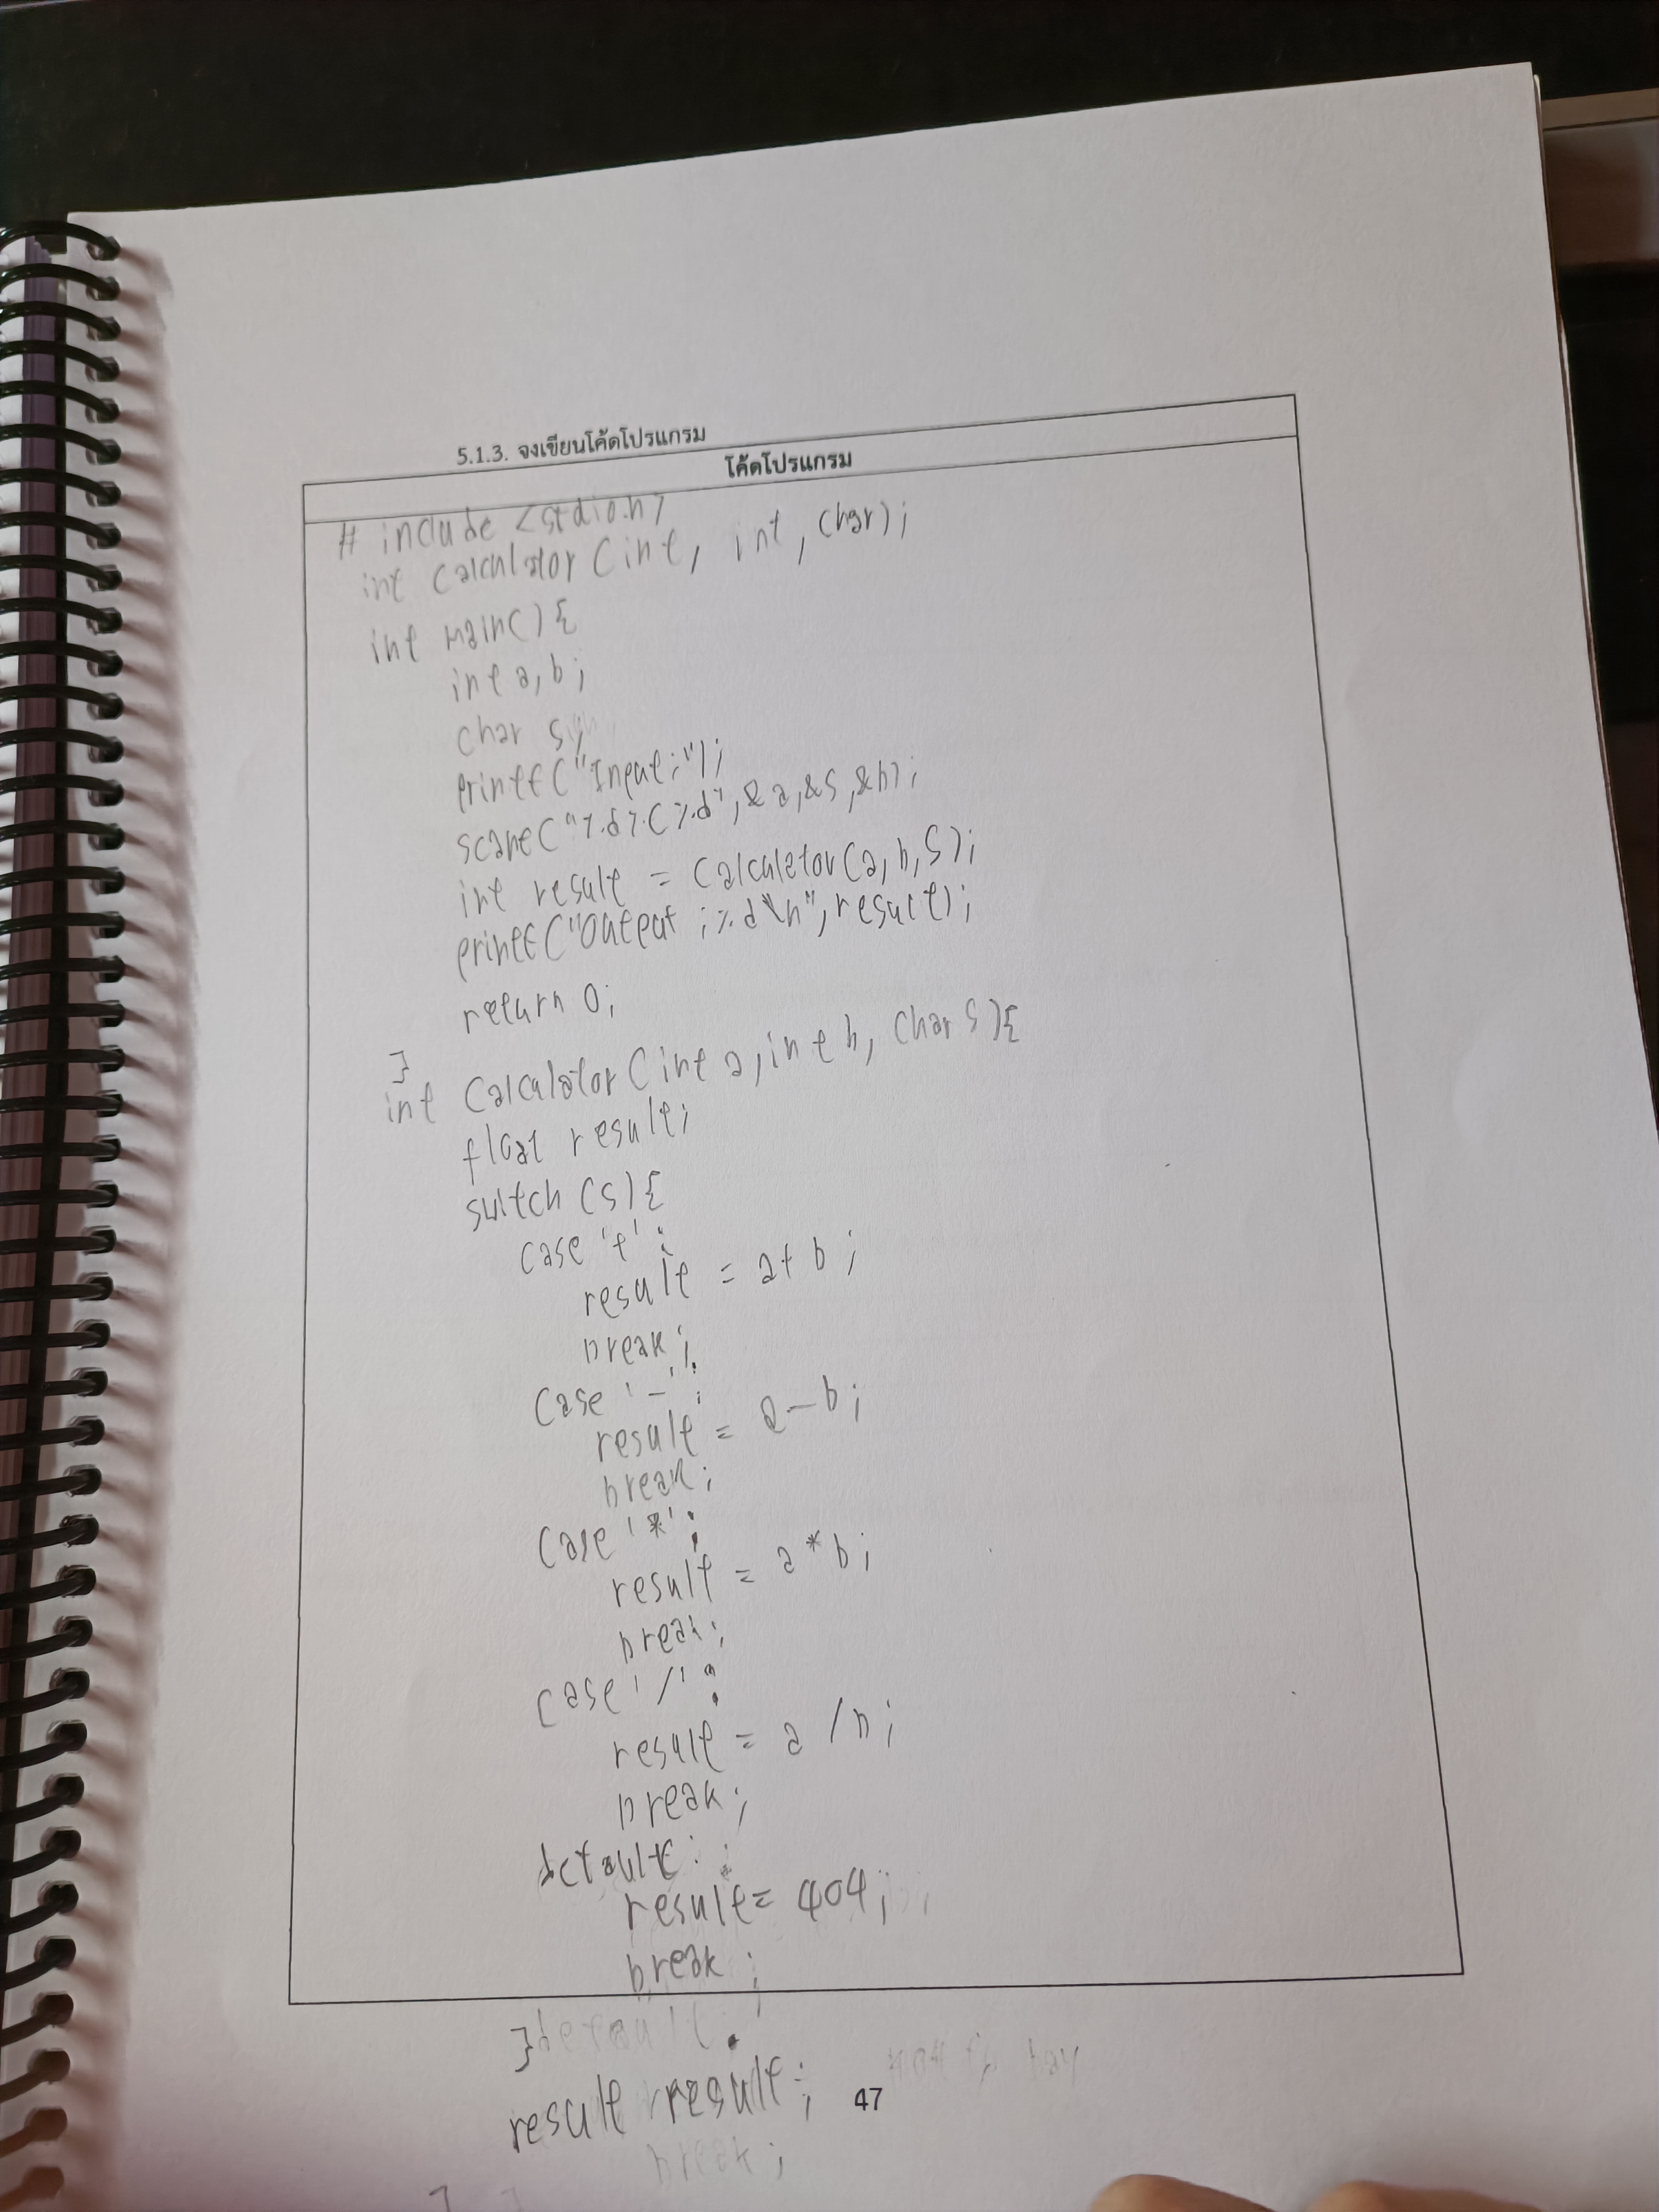 5.1.3. จงเขียนโค้ดโปรแกรม
โค้ดโปรแกรม
# include <stdio.h>
int Calculator (int, int, char);
int main() {
int a, b;
char s;
printf("Input:");
scanf("%d%c%d", &a, &s, &b);
int result = Calculator(a, b, s);
printf("Output :%d\n", result);
return 0;
}
int Calculator (int a, int b, char s) {
float result;
switch (s) {
case '+' :
result = a + b ;
break ;
case '-' :
result = a - b ;
break ;
case '*' :
result = a * b ;
break ;
case '/' :
result = a / b ;
break ;
default :
result = 404 ;
break ;
} default
result result ;
47
break ;
}